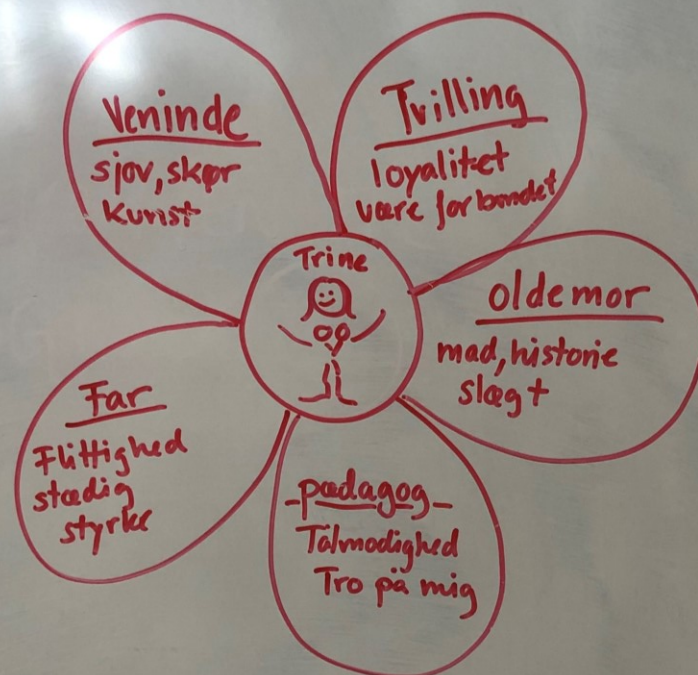 Veninde
sjov, skør
kunst
Tvilling
loyalitet
være forbundet
Trine
oldemor
mad, historie
slægt
Far
Flittighed
stædig
styrke
pædagog
Tålmodighed
Tro på mig